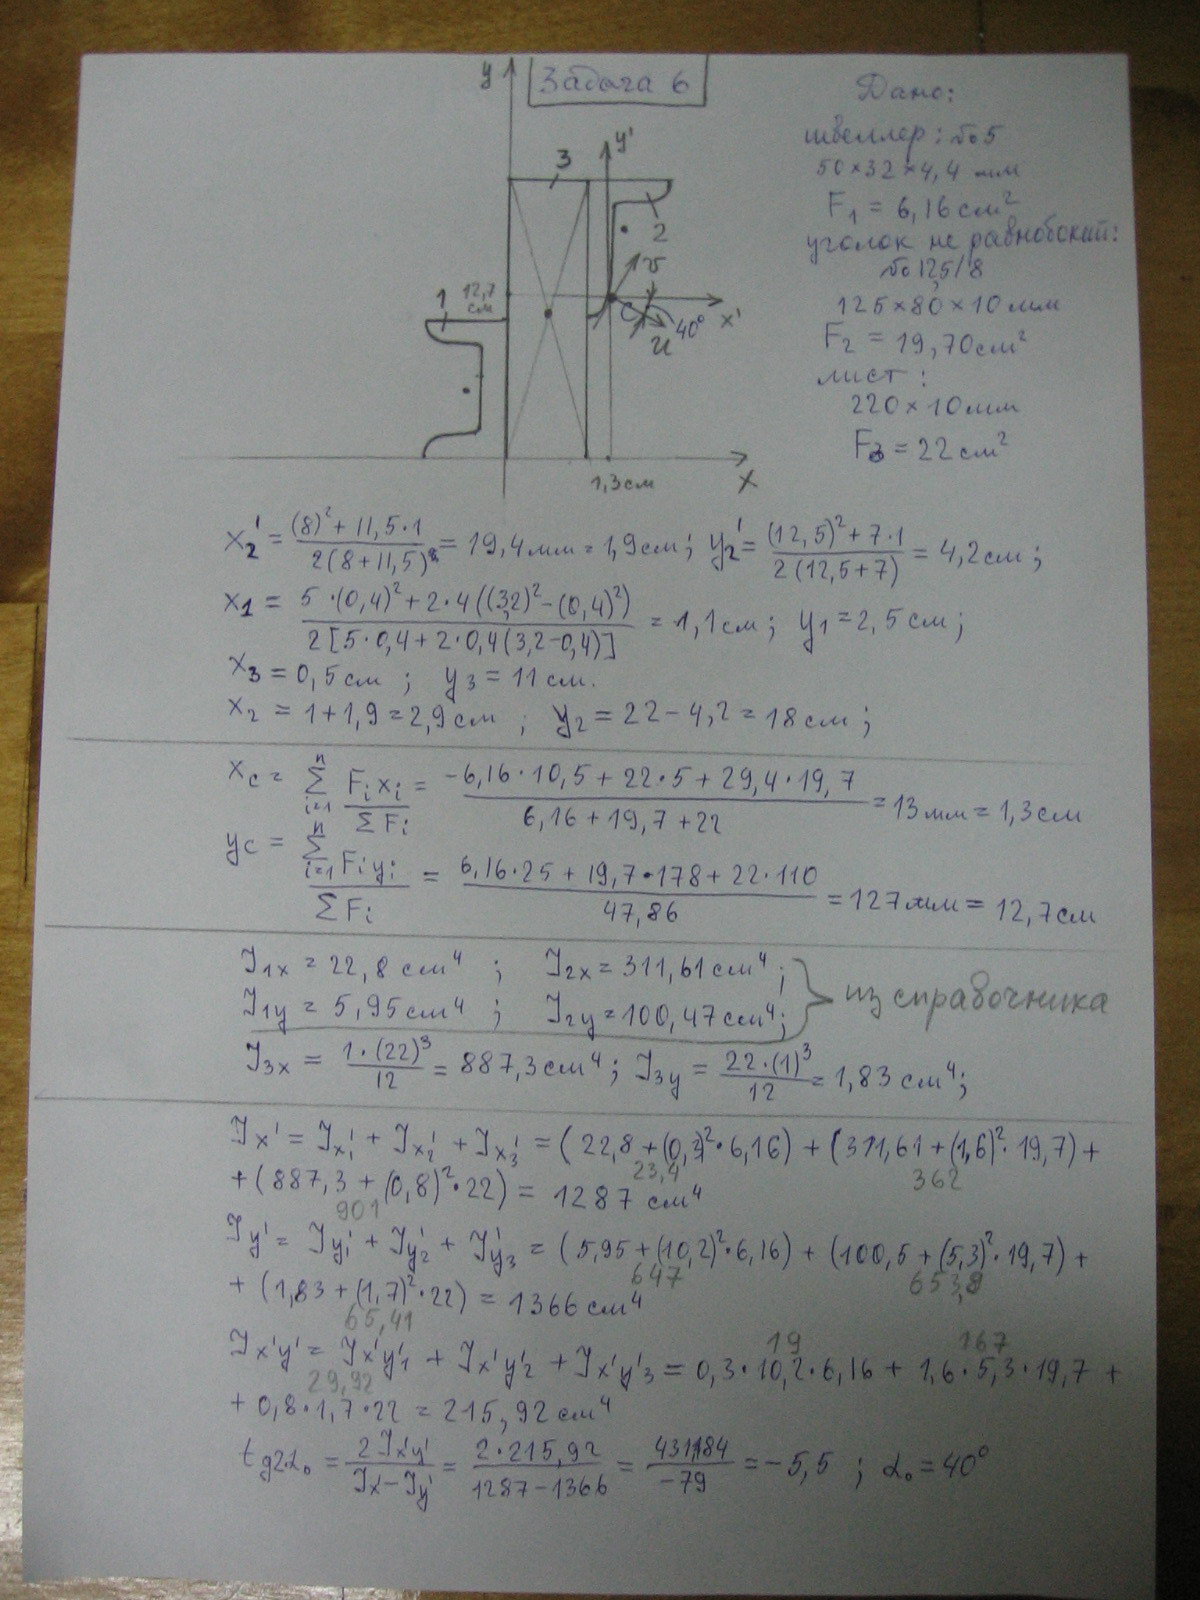 Задача 6
y
y'
3
2
v
1
12,7
см
C
x'
40°
u
1,3см
x
Дано:
швеллер: №5
50×32×4,4 мм
F₁ = 6,16 см²
уголок не равнобокий:
№ 12,5/8
125×80×10 мм
F₂ = 19,70см²
лист:
220×10мм
F₃ = 22 см²
x₂' = (8)² + 11,5·1 / 2(8+11,5) = 19,4мм = 1,9см; y₂' = (12,5)² + 7·1 / 2(12,5+7) = 4,2см;
x₁ = 5·(0,4)² + 2·4((3,2)² - (0,4)²) / 2[5·0,4 + 2·0,4(3,2-0,4)] = 1,1см; y₁ = 2,5см;
x₃ = 0,5см; y₃ = 11 см.
x₂ = 1+1,9 = 2,9см; y₂ = 22 - 4,2 = 18см;
xc = Σ n i=1 Fᵢxᵢ / ΣFᵢ = -6,16·10,5 + 22·5 + 29,4·19,7 / 6,16 + 19,7 + 22 = 13мм = 1,3см
yc = Σ n i=1 Fᵢyᵢ / ΣFᵢ = 6,16·25 + 19,7·178 + 22·110 / 47,86 = 127мм = 12,7см
J₁x = 22,8 см⁴; J₂x = 311,61 см⁴;
J₁y = 5,95 см⁴; J₂y = 100,47см⁴;
из справочника
J₃x = 1·(22)³ / 12 = 887,3см⁴; J₃y = 22·(1)³ / 12 = 1,83 см⁴;
Jx' = Jx₁' + Jx₂' + Jx₃' = (22,8 + (0,3)²·6,16) + (311,61 + (1,6)²·19,7) +
23,4 362
+ (887,3 + (0,8)²·22) = 1287 см⁴
901
Jy' = Jy₁' + Jy₂' + Jy₃' = (5,95 + (10,2)²·6,16) + (100,5 + (5,3)²·19,7) +
647 653,8
+ (1,83 + (1,7)²·22) = 1366 см⁴
65,41
19 167
Jx'y' = Jx'y'₁ + Jx'y'₂ + Jx'y'₃ = 0,3·10,2·6,16 + 1,6·5,3·19,7 +
29,92
+ 0,8·1,7·22 = 215,92 см⁴
tg2α₀ = 2Jx'y' / Jx' - Jy' = 2·215,92 / 1287 - 1366 = 431,84 / -79 = -5,5; α₀ = 40°